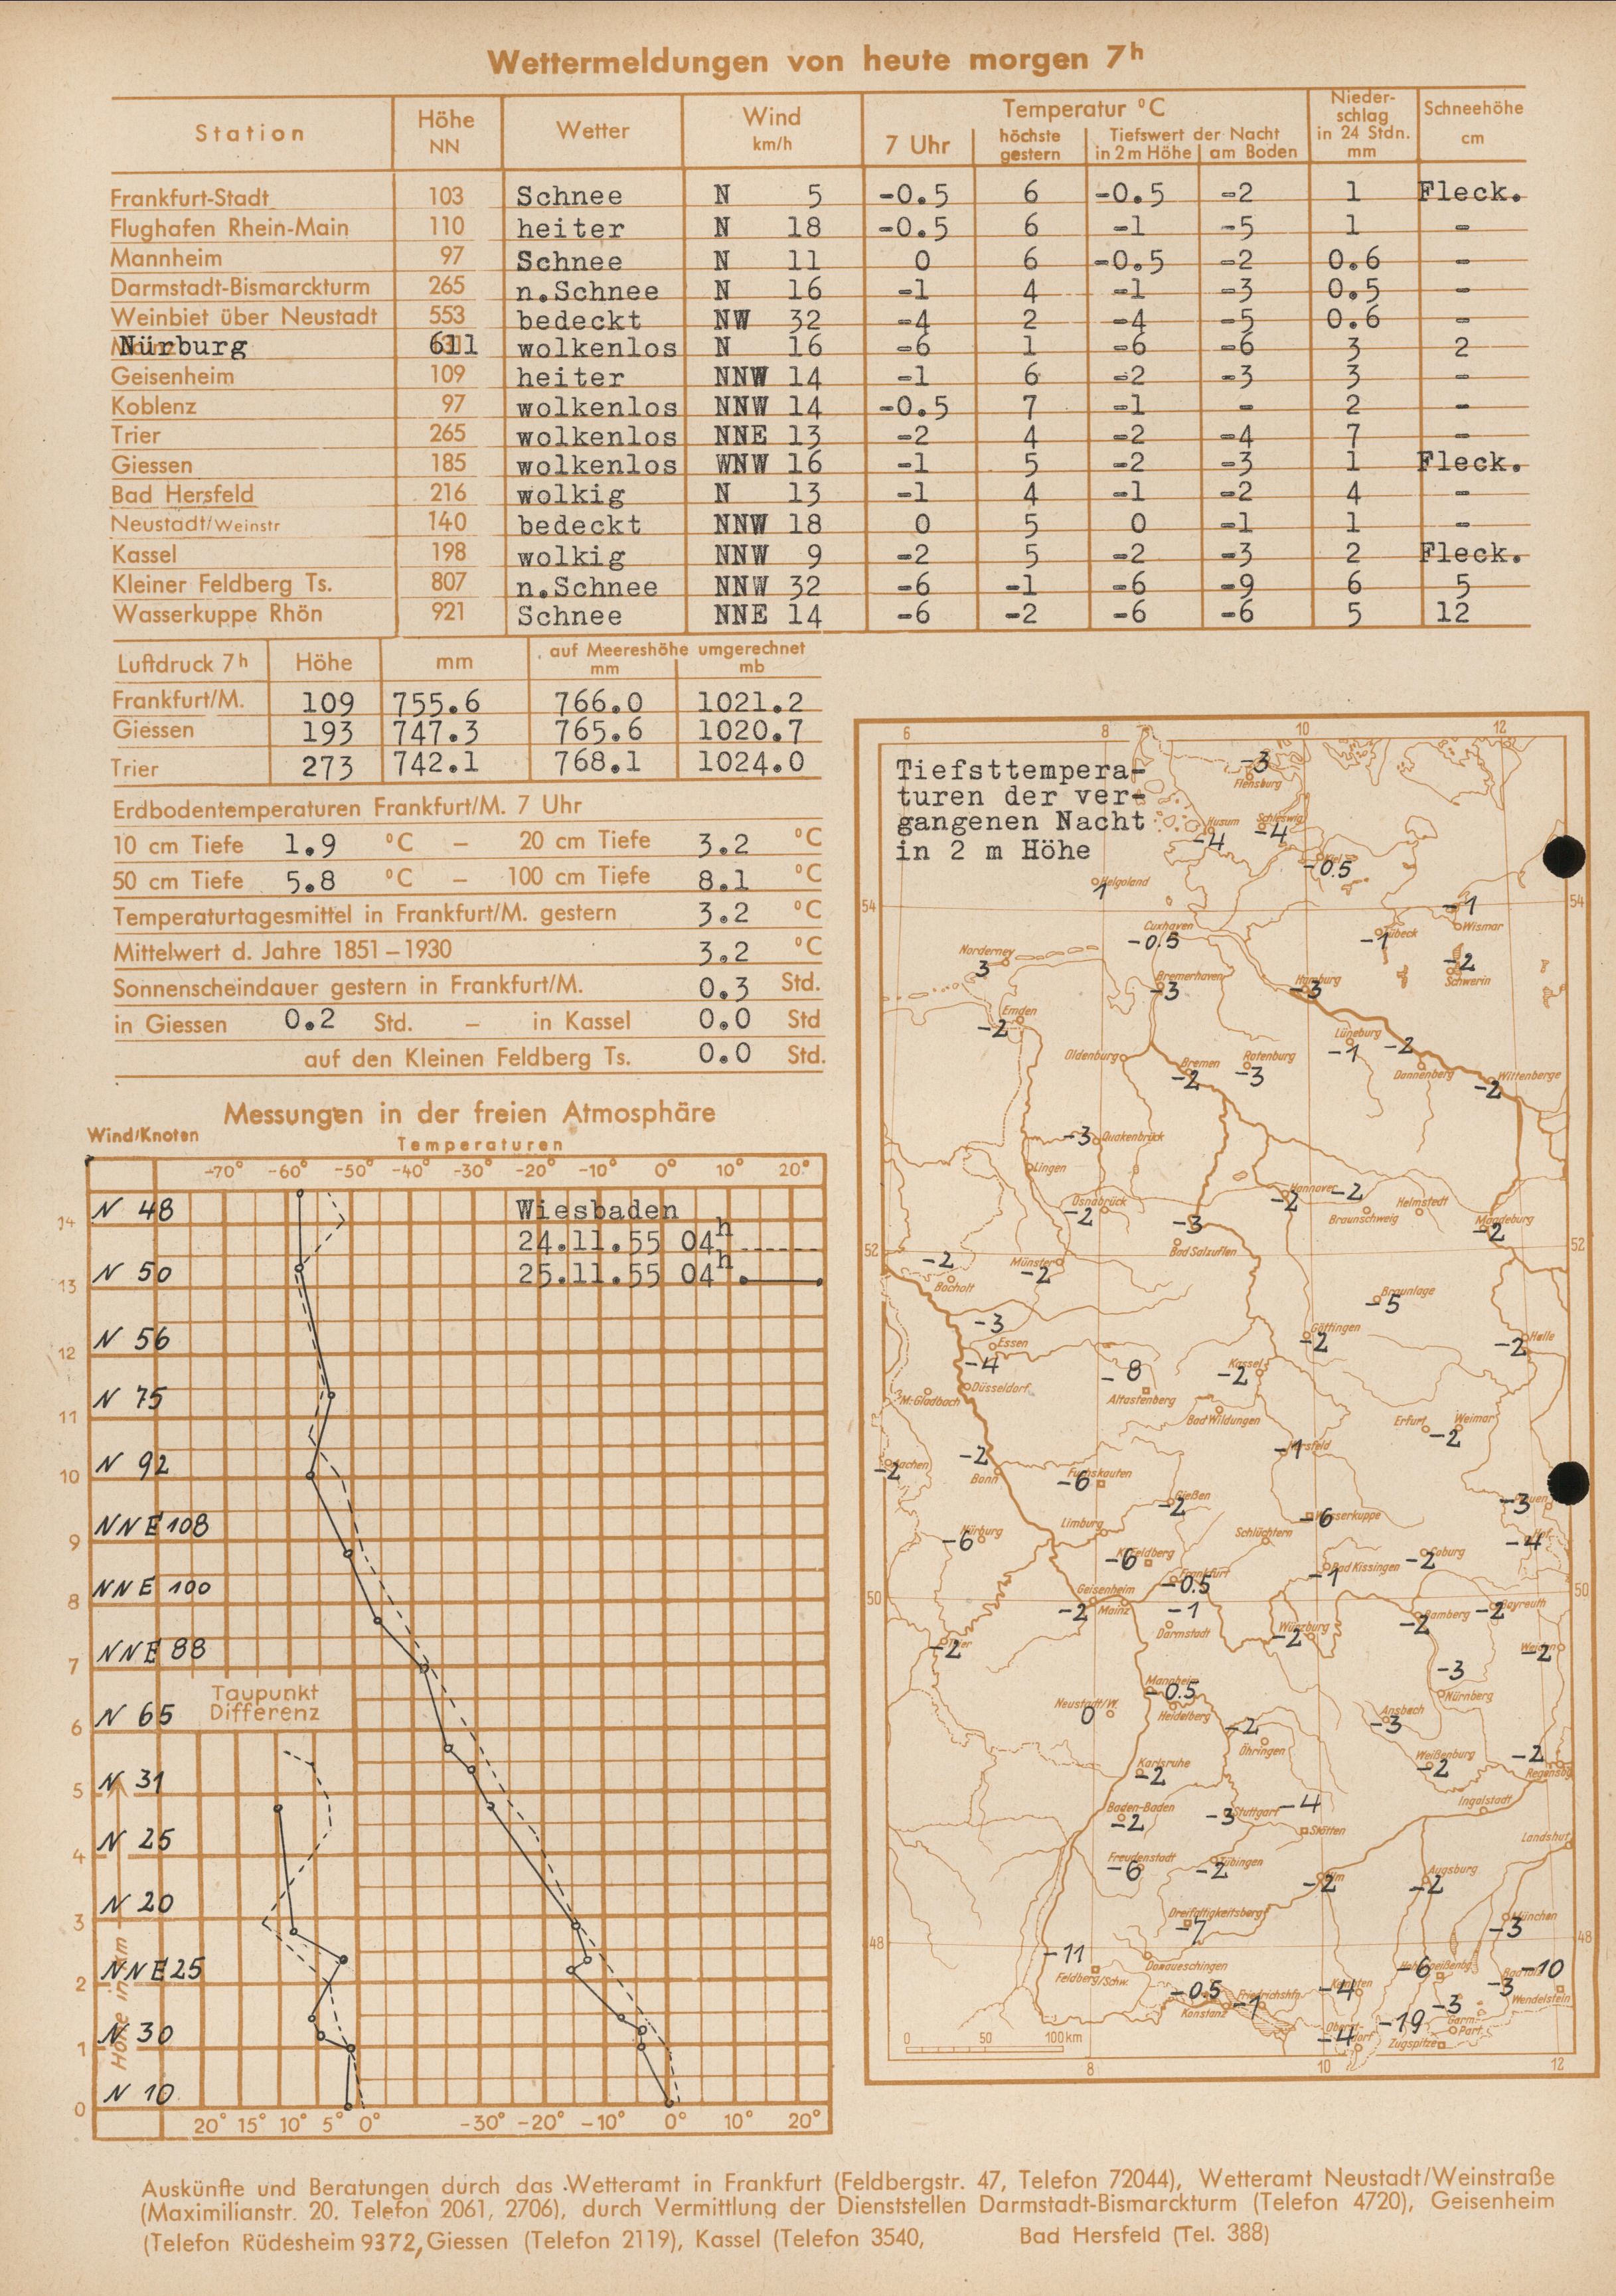 Wettermeldungen von heute morgen 7h
Station Höhe NN Wetter Wind km/h Temperatur °C Nieder-schlag in 24 Stdn. mm Schneehöhe cm
7 Uhr höchste gestern Tiefswert der Nacht in 2 m Höhe am Boden
Frankfurt-Stadt 103 Schnee N 5 -0.5 6 -0.5 -2 1 Fleck.
Flughafen Rhein-Main 110 heiter N 18 -0.5 6 -1 -5 1 -
Mannheim 97 Schnee N 11 0 6 -0.5 -2 0.6 -
Darmstadt-Bismarckturm 265 n.Schnee N 16 -1 4 -1 -3 0.5 -
Weinbiet über Neustadt 553 bedeckt NW 32 -4 2 -4 -5 0.6 -
Nürburg 611 wolkenlos N 16 -6 1 -6 -6 3 2
Geisenheim 109 heiter NNW 14 -1 6 -2 -3 3 -
Koblenz 97 wolkenlos NNW 14 -0.5 7 -1 - 2 -
Trier 265 wolkenlos NNE 13 -2 4 -2 -4 7 -
Giessen 185 wolkenlos WNW 16 -1 5 -2 -3 1 Fleck.
Bad Hersfeld 216 wolkig N 13 -1 4 -1 -2 4 -
Neustadt/Weinstr 140 bedeckt NNW 18 0 5 0 -1 1 -
Kassel 198 wolkig NNW 9 -2 5 -2 -3 2 Fleck.
Kleiner Feldberg Ts. 807 n.Schnee NNW 32 -6 -1 -6 -9 6 5
Wasserkuppe Rhön 921 Schnee NNE 14 -6 -2 -6 -6 5 12
Luftdruck 7h Höhe mm auf Meereshöhe umgerechnet mm mb
Frankfurt/M. 109 755.6 766.0 1021.2
Giessen 193 747.3 765.6 1020.7
Trier 273 742.1 768.1 1024.0
Erdbodentemperaturen Frankfurt/M. 7 Uhr
10 cm Tiefe 1.9 °C – 20 cm Tiefe 3.2 °C
50 cm Tiefe 5.8 °C – 100 cm Tiefe 8.1 °C
Temperaturtagesmittel in Frankfurt/M. gestern 3.2 °C
Mittelwert d. Jahre 1851–1930 3.2 °C
Sonnenscheindauer gestern in Frankfurt/M. 0.3 Std.
in Giessen 0.2 Std. – in Kassel 0.0 Std
auf den Kleinen Feldberg Ts. 0.0 Std.
Messungen in der freien Atmosphäre
Wind/Knoten Temperaturen
-70° -60° -50° -40° -30° -20° -10° 0° 10° 20°
N 48 Wiesbaden
14 24.11.55 04h
N 50 25.11.55 04h
13
N 56
12
N 75
11
N 92
10
NNE 108
9
NNE 100
8
NNE 88
7
N 65 Taupunkt Differenz
6
N 31
5
N 25
4
N 20
3
NNE 25
2
N 30
1
N 10
0
Höhe in km
20° 15° 10° 5° 0° -30° -20° -10° 0° 10° 20°
6 8 10 12
Tiefsttempera-
turen der ver-
gangenen Nacht
in 2 m Höhe
-3 Flensburg
Husum -4 Schleswig -4
Kiel -0.5
Helgoland 1
54 54
Cuxhaven -0.5 Lübeck -1 -1 Wismar
Norderney 3 Bremerhaven -3 Hamburg -3 -2 Schwerin
Emden -2 Lüneburg -1 -2 Dannenberg
Oldenburg Bremen -2 Rotenburg -3 Wittenberge -2
-3 Quakenbrück
Lingen
Osnabrück -2 -3 Bad Salzuflen Hannover -2 -2 Braunschweig Helmstedt Magdeburg -2
52 52
-2 Bocholt Münster -2 Braunlage -5
-3 Essen Göttingen -2 Halle -2
-4 Düsseldorf -8 Altastenberg Kassel -2
M.-Gladbach Bad Wildungen Erfurt Weimar -2
Aachen -2 -2 Bonn Fuchskauten -6 Hersfeld -1
Gießen -2 Wasserkuppe -6 Plauen -3
Nürburg -6 Limburg Schlüchtern Hof -4
Kl. Feldberg -6 Bad Kissingen -1 Coburg -2
50 Geisenheim -2 Mainz Frankfurt -0.5 50
-1 Darmstadt Würzburg -2 Bamberg -2 Bayreuth -2
Trier -2 Weiden -2
Mannheim -0.5 -3 Nürnberg
Neustadt/W. 0 Heidelberg -2 Öhringen Ansbach -3
Karlsruhe -2 Weißenburg -2 -2 Regensbg
Baden-Baden -2 -3 Stuttgart -4 Stötten Ingolstadt
Freudenstadt -6 Tübingen -2 Ulm -2 Augsburg -2 Landshut
Dreifaltigkeitsberg -7 München -3
48 48
-11 Feldberg/Schw. Donaueschingen Hohenpeißenbg. -6 Bad Tölz -3 -10 Wendelstein
-0.5 Konstanz Friedrichshfn. -1 Kempten -4
Oberstdorf -4 -19 Zugspitze -3 Garm.-Part.
0 50 100 km
8 10 12
Auskünfte und Beratungen durch das Wetteramt in Frankfurt (Feldbergstr. 47, Telefon 72044), Wetteramt Neustadt/Weinstraße
(Maximilianstr. 20. Telefon 2061, 2706), durch Vermittlung der Dienststellen Darmstadt-Bismarckturm (Telefon 4720), Geisenheim
(Telefon Rüdesheim 9372, Giessen (Telefon 2119), Kassel (Telefon 3540, Bad Hersfeld (Tel. 388)